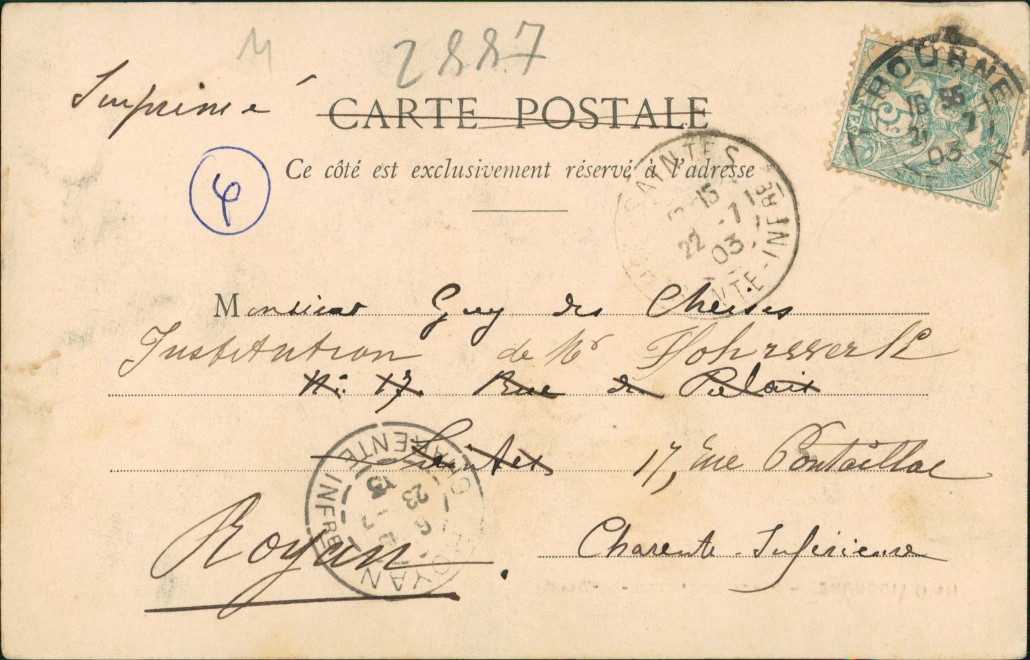 2887
Imprimé
CARTE POSTALE
Ce côté est exclusivement réservé à l'adresse
LIBOURNE
16 55
21 -7
03
SAINTES
15
22 -7
03
CHARENTE-INFRE
Monsieur Guy des
Institution de Mr
No 17 Rue du Palais
Saintes 17, rue Pontaillac
Royan.
Charente-Inférieure
ROYAN
CHARENTE INFRE
23 -7
03